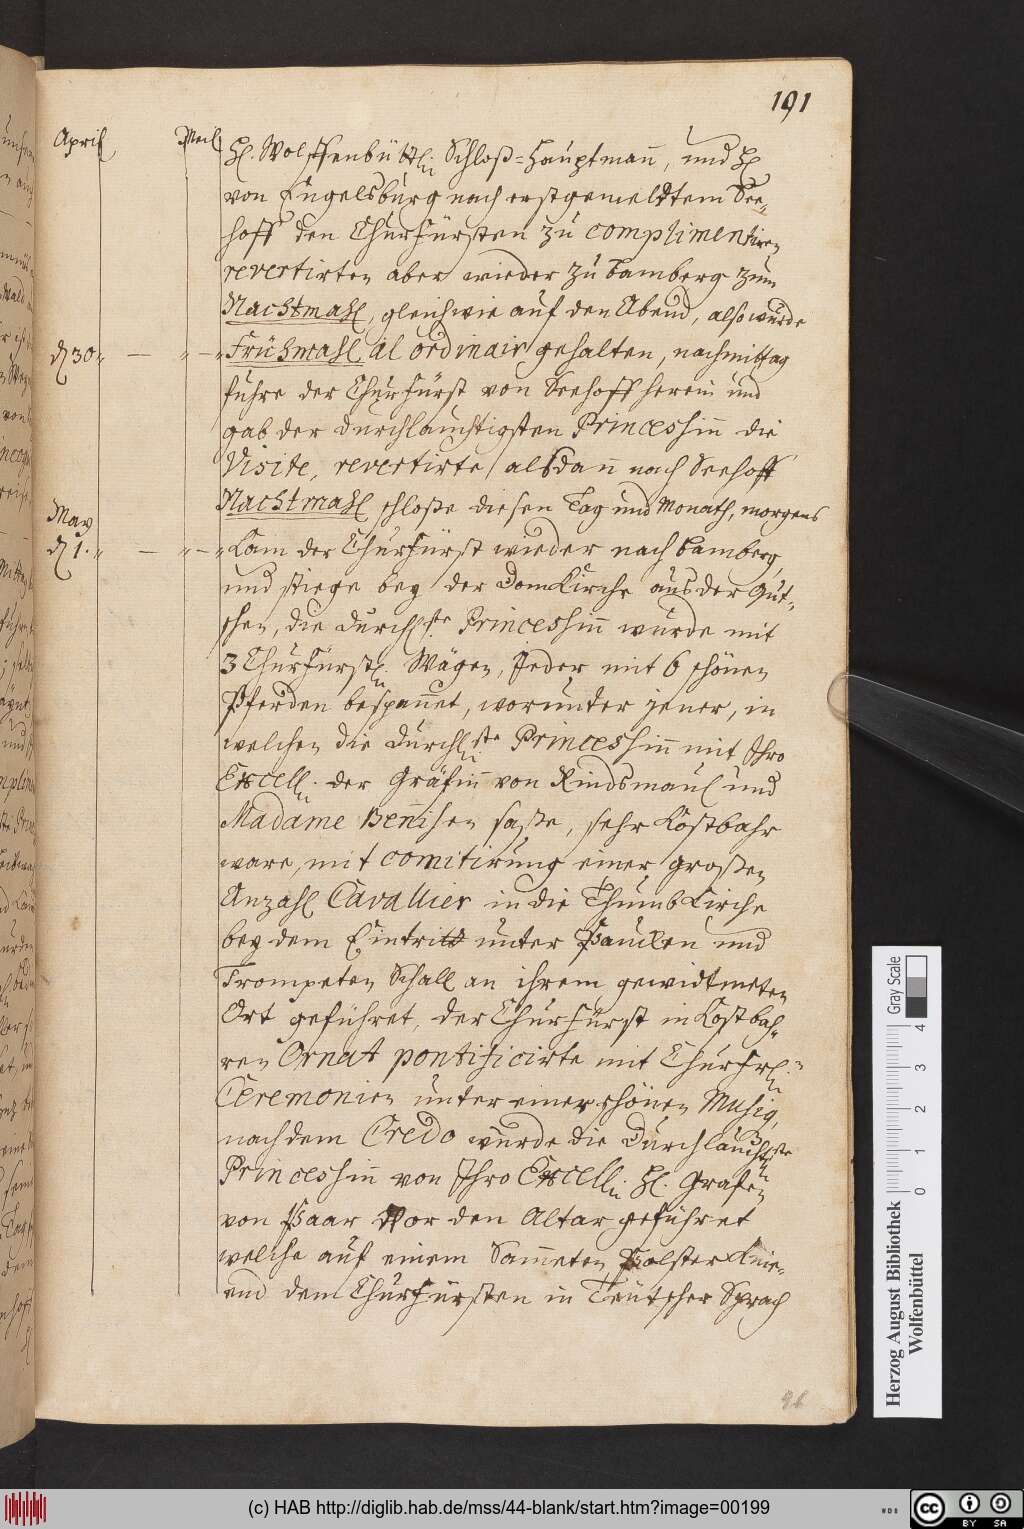 191
April Meil
H. Wolffenbüttl. Schloß-Hauptmann, und H
von Engelsburg nach erstgemeldtem See-
hoff den Churfürsten zu complimentiren
revertirten aber wieder zu Bamberg zum
Nachtmahl, gleichwie auf den Abend, also wurde
d 30 " — " — " Frühmahl al ordinair gehalten, nachmittag
fuhre der Churfürst von Seehoff herein und
gab der durchlauchtigsten Princeshinn die
Visite, revertirte alsdann nach Seehoff
Nachtmahl schloße diesen Tag und Monath, morgens
May
d 1. " — " — " Kam der Churfürst wieder nach Bamberg,
und stiege bey der DomKirche aus der Gut-
schen, die durchl.ste Princeshinn wurde mit
3 Churfürstl. Wägen, Jeder mit 6 schönen
Pferden bespannet, worunter jener, in
welchen die durchl.ste Princeshinn mit Ihro
Excell. der Gräfinn von Rindsmaul und
Madame Bennisen saße, sehr Kostbahr
ware, mit comitirung einer großen
Anzahl Cavallier in die ThumbKirche
bey dem Eintritt unter Paucken und
Trompeten Schall an ihrem gewidtmeten
Ort geführet, der Churfürst in Kostbah-
ren Ornat pontificirte mit Churfrl.n
Ceremonien unter einer schönen Musig,
nach dem Credo wurde die Durchläuchtste
Princeshinn von Ihro Excell. H. Grafen
von Paar vor den Altar geführet
welche auf einem Sammeten Polster Knie-
end dem Churfürsten in Teutscher Sprach
Herzog August Bibliothek
Wolfenbüttel
0 1 2 3 4
Gray Scale
(c) HAB http://diglib.hab.de/mss/44-blank/start.htm?image=00199
WDB
cc BY SA